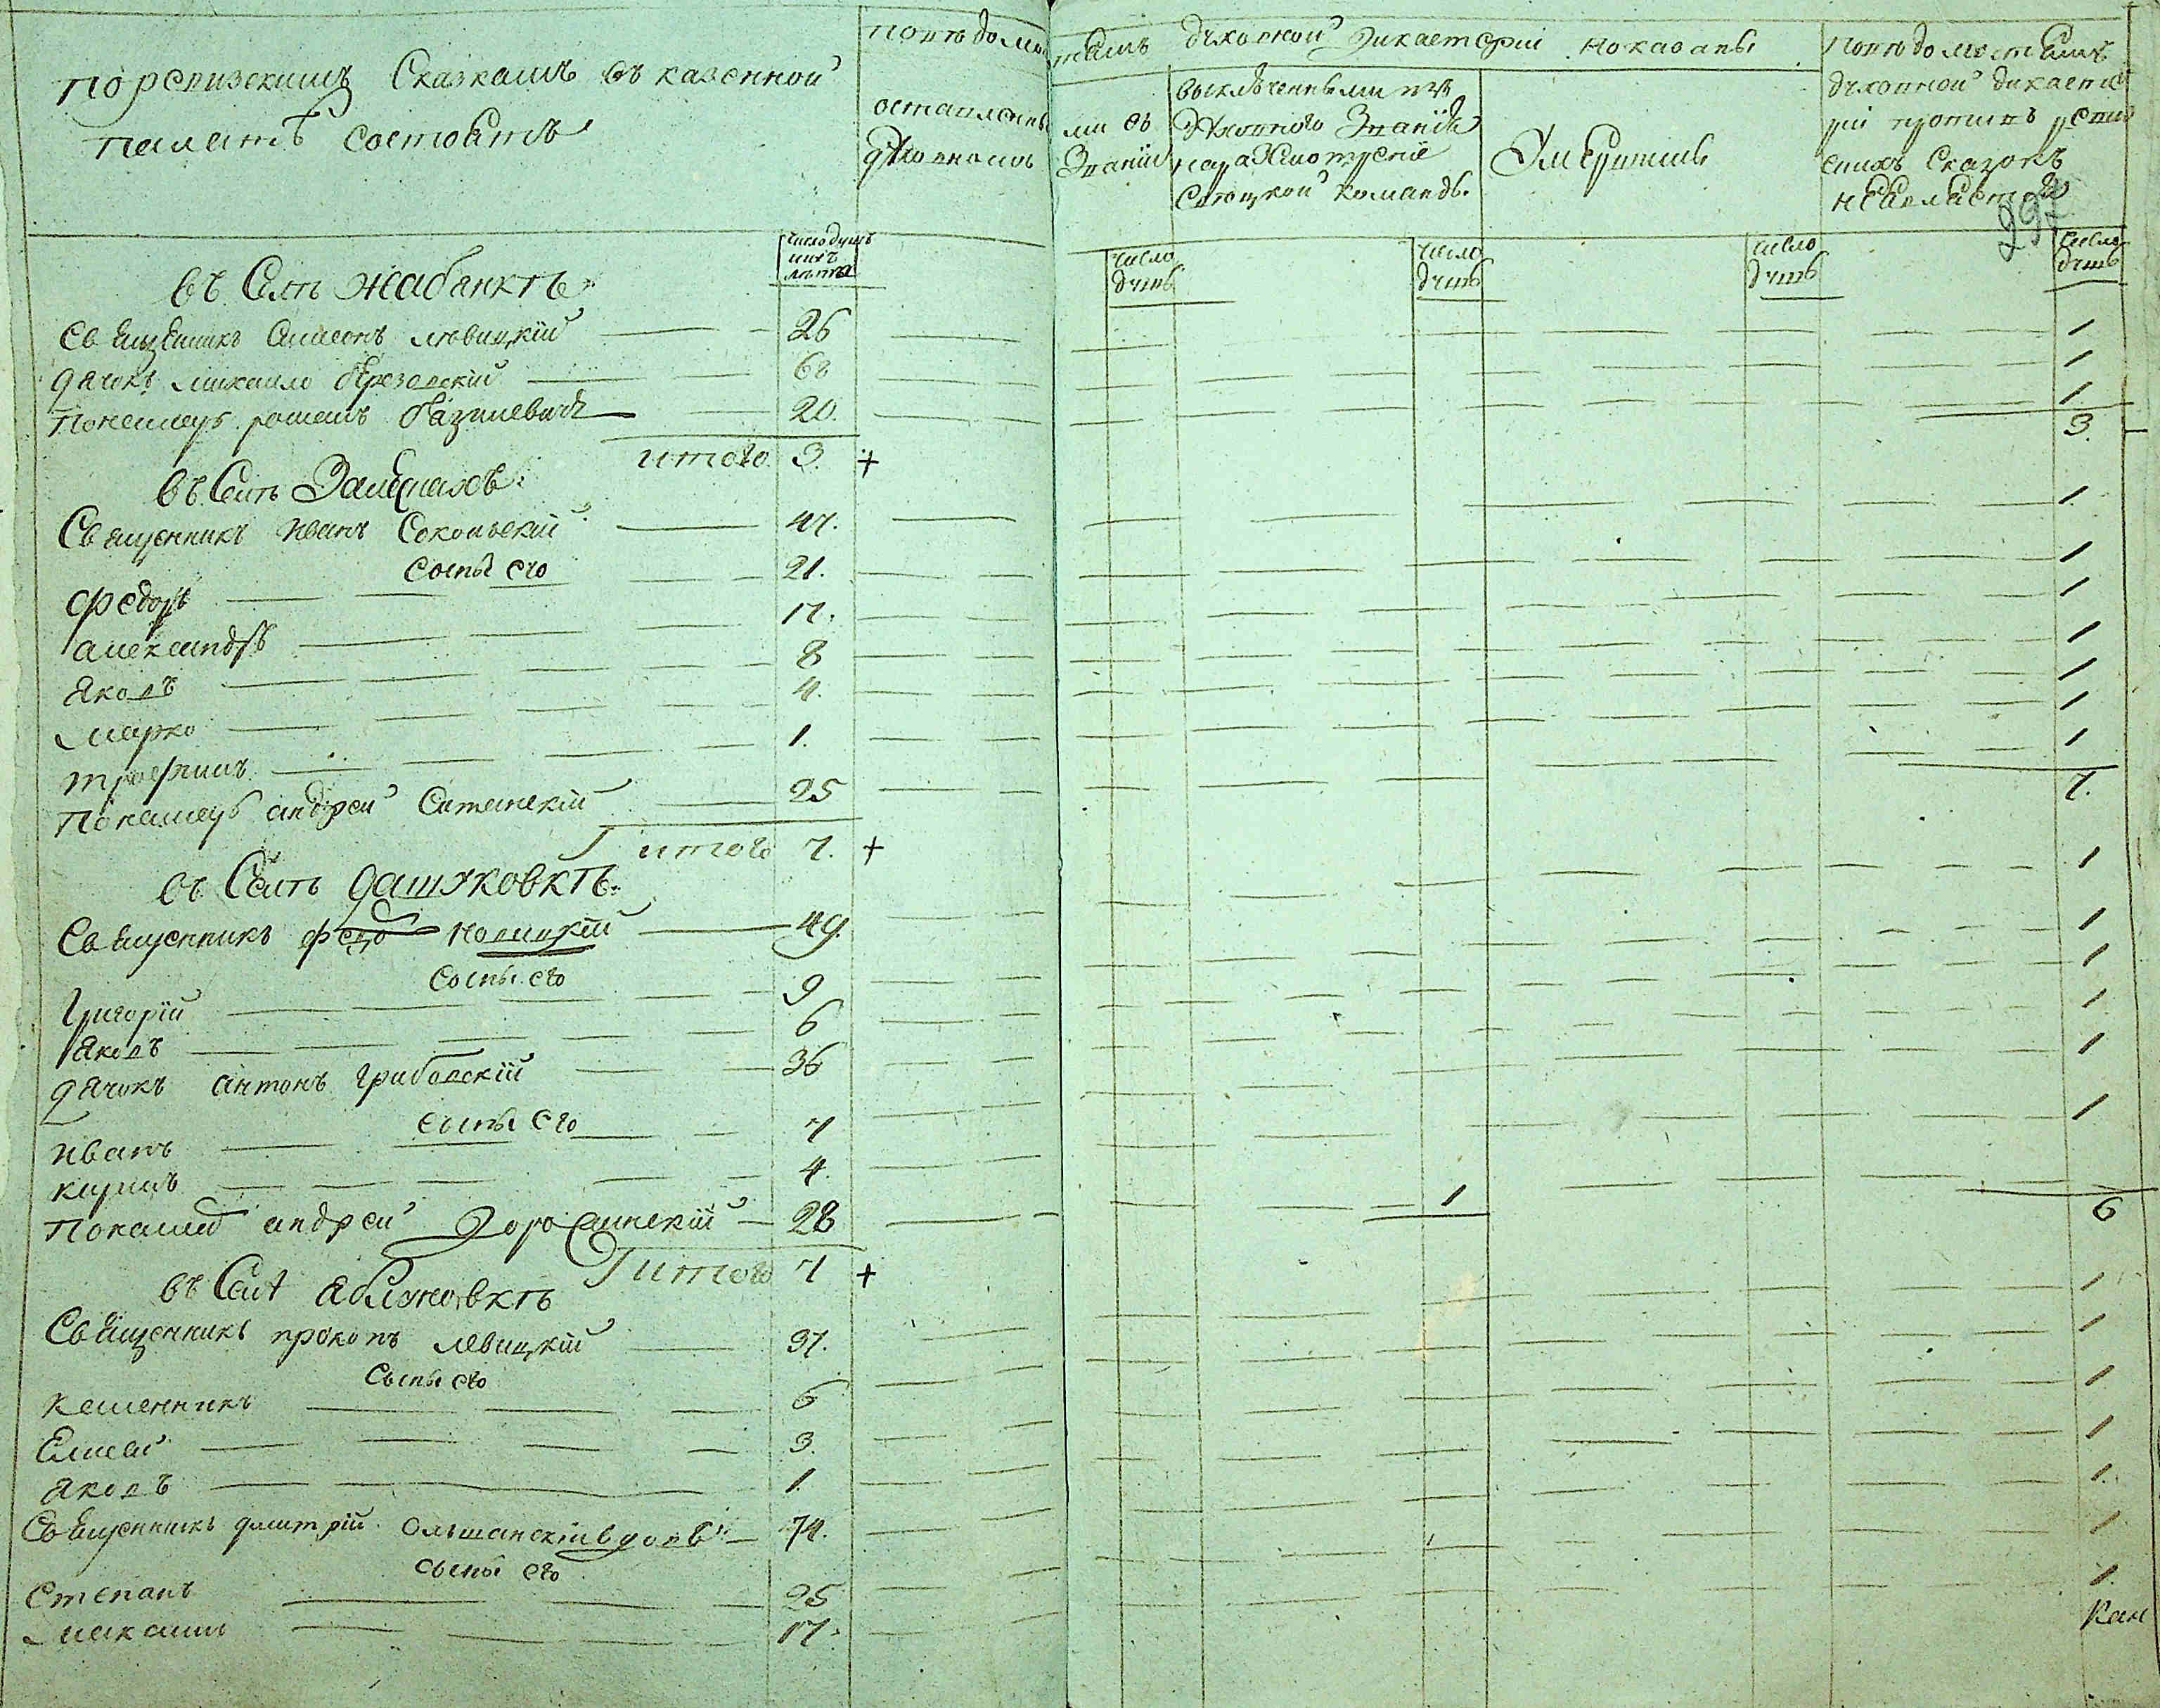 По ревизскимъ Сказкамъ въ казенной
палатѣ состоитъ
По вѣдомостямъ духовной дикастеріи показаны
оставленны
ми въ
духовномъ Званіи
выключенными изъ
духовного Званія
на разсмотреніе
Свѣцкой команды
Умершими
По вѣдомостямъ
духовной дикасте
ріи противъ реви
скихъ Сказокъ
неявляется
297
число душъ
ихъ
лѣта
число
душъ
число
душъ
число
душъ
число
душъ
въ Селѣ Жабянкѣ
Священникъ Симеонъ Левицкій 26 1
дячокъ михаило березовский 68 1
Пономарь романъ базилевичъ 20. 1
итого 3. + 3.
въ Селѣ Залѣсцахъ
Священникъ Иванъ Сокольскій 47. 1
Сыны его
Федоръ 21. 1
александръ 17. 1
Яковъ 8 1
Марко 4. 1
трофимъ 1. 1
Пономарь андрей Ситанскій 25 1
итого 7. + 7.
въ Селѣ дашуковкѣ
Священникъ федо Новицкій 49. 1
Сыны его
Григорій 9 1
Яковъ 6 1
дячокъ антонъ грибовскій 36 1
сыны его
Иванъ 7 1
Кирилъ 4. 1
Понамар андрей Дорожинскій 28 1
итого 7 + 6
въ Селѣ Яблуновкѣ
Священникъ прокопъ левицкій 37. 1
Сыны его
6 1
Елисей 3. 1
Яковъ 1. 1
Священникъ дмитрій Ольшанскій вдовъ 74. 1
сыны его
Степанъ 25 1
Максимъ 17. 1
Кан